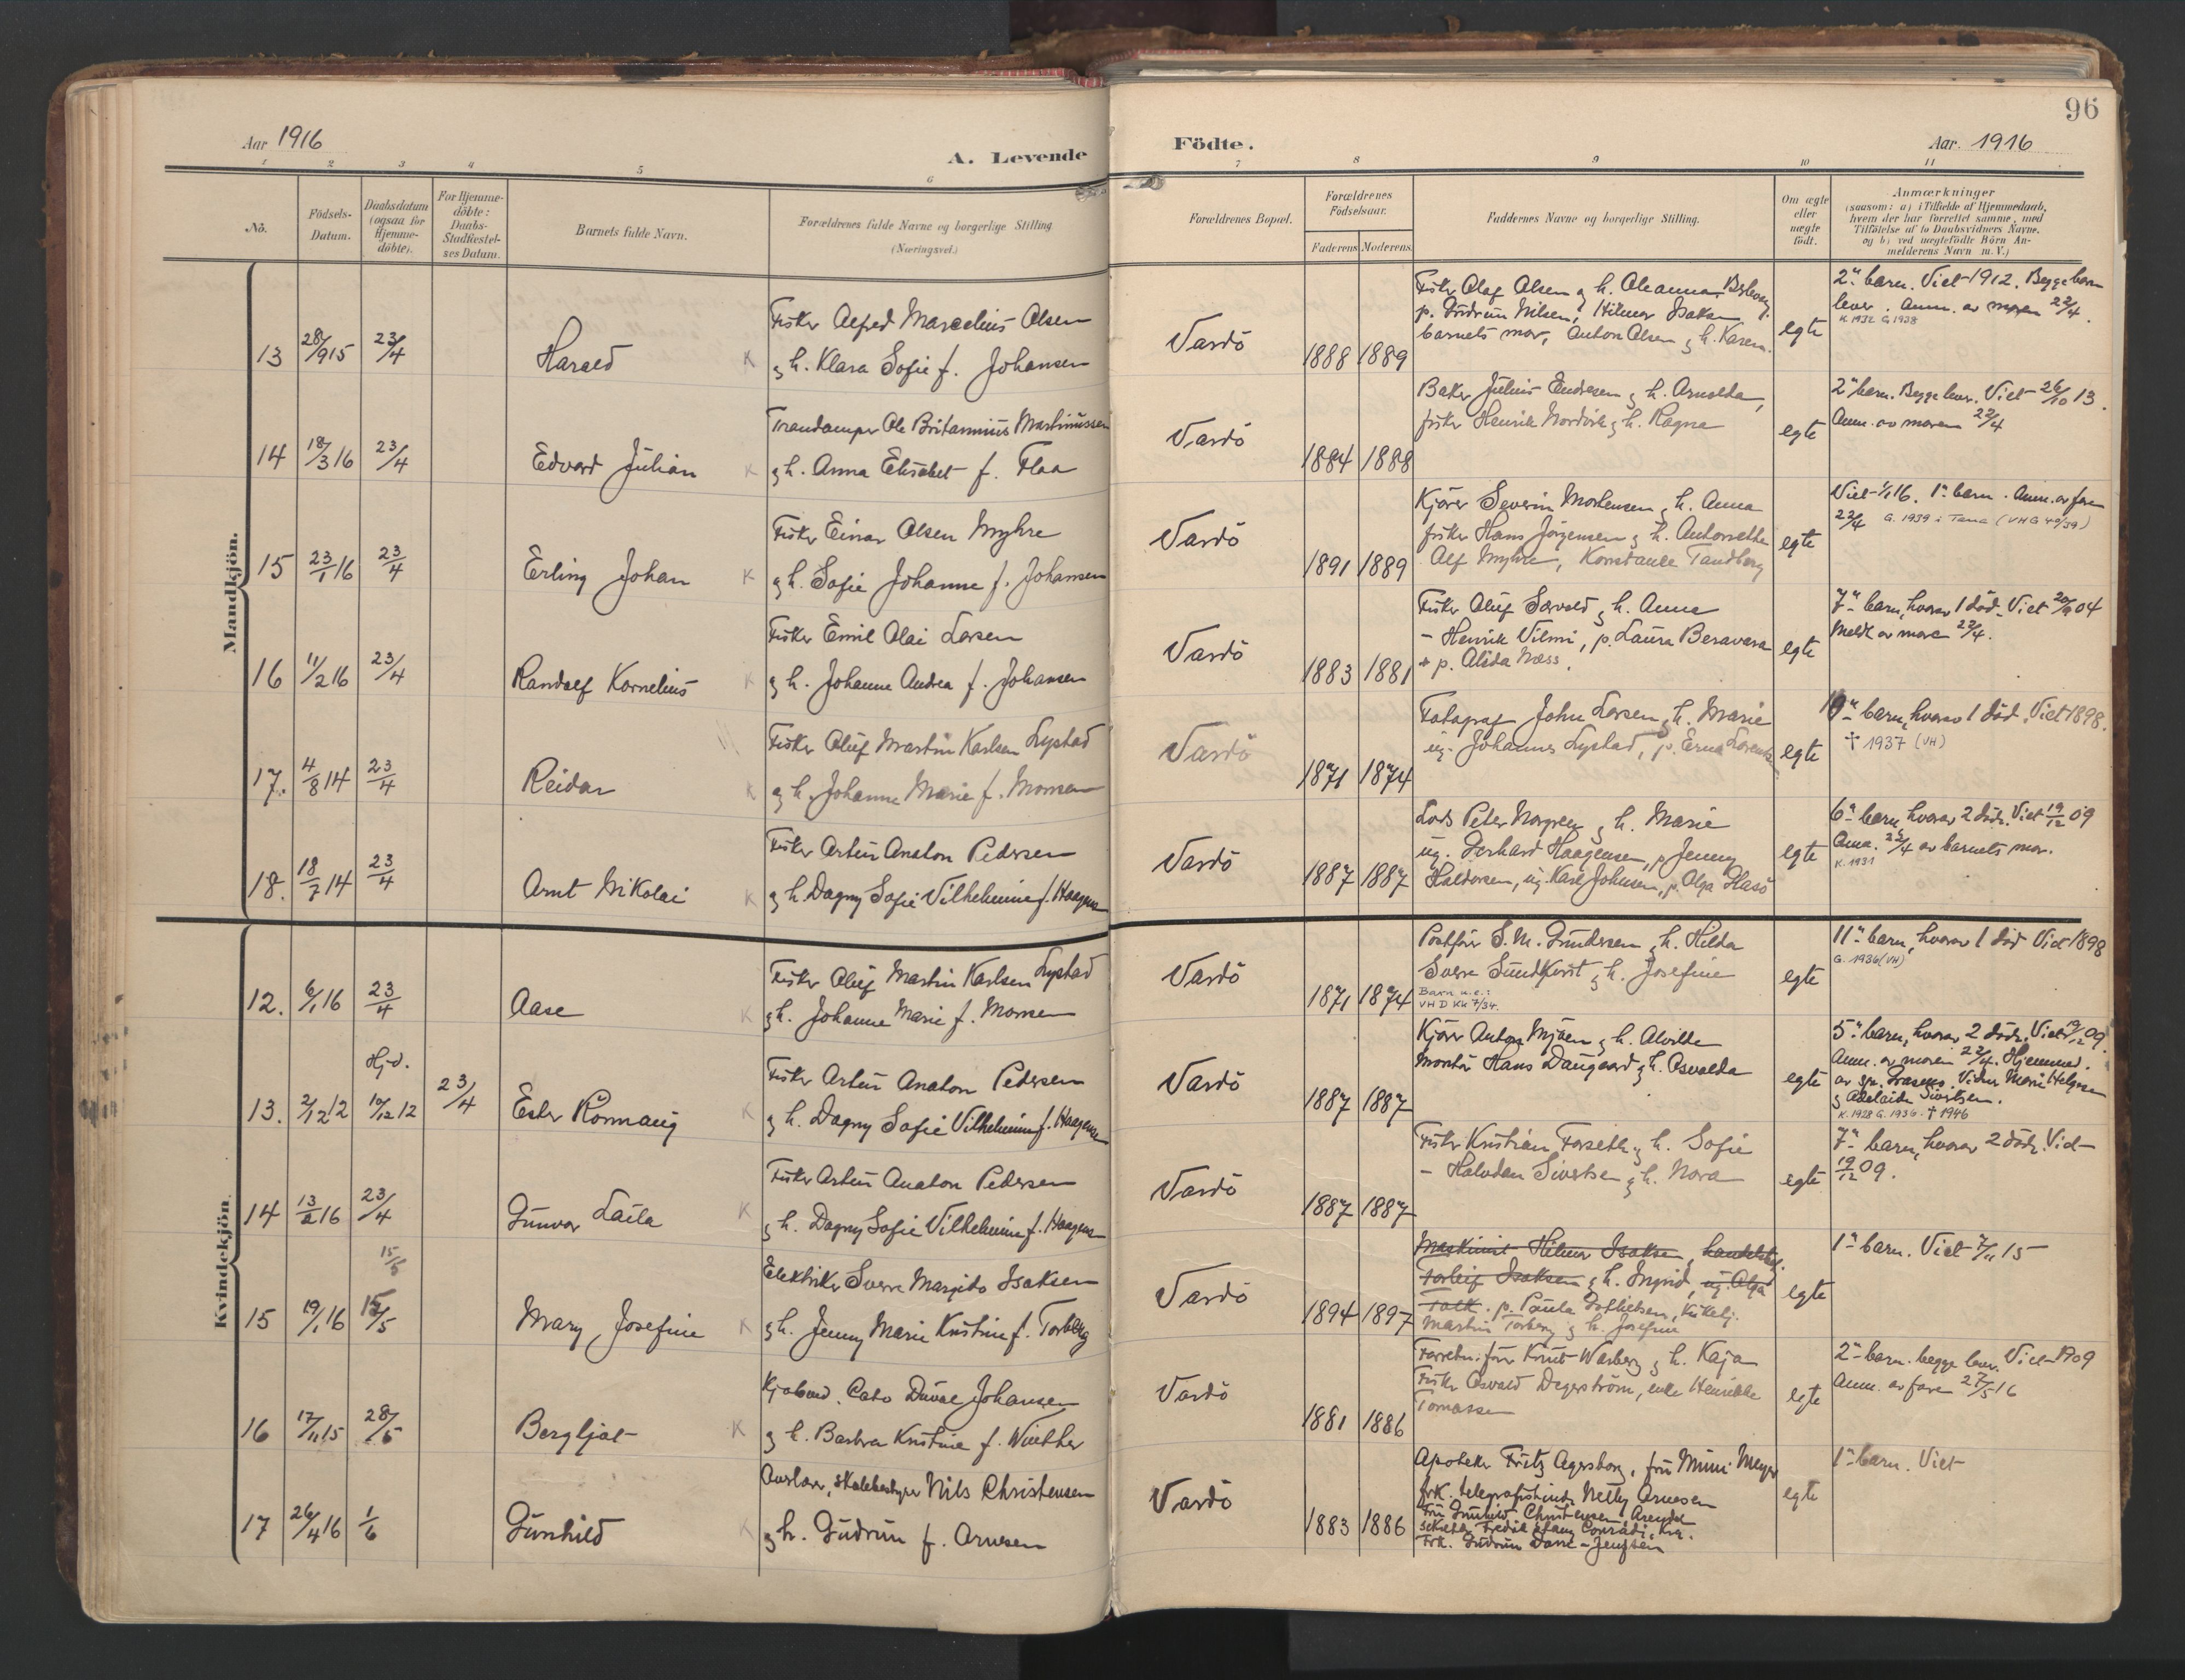 96
Aar 1916
A. Levende
Födte.
Aar. 1916
1 2 3 4 5 6 7 8 9 10 11
No.
Födsels-
Datum.
Daabsdatum
(ogsaa for
Hjemme-
döbte).
For Hjemme-
döbte:
Daabs-
Stadfæstel-
ses Datum.
Barnets fulde Navn.
Forældrenes fulde Navne og borgerlige Stilling
(Næringsvei.)
Forældrenes Bopæl.
Forældrenes
Födselsaar.
Faderens Moderens.
Faddernes Navne og borgerlige Stilling.
Om ægte
eller
uægte
födt.
Anmærkninger
(saasom: a) i Tilfælde af Hjemmedaab,
hvem der har forrettet samme, med
Tilföielse af to Daabsvidners Navne.
og b) ved uægtefödte Börn An-
melderens Navn m. V.)
Mandkjön.
13 28/9 15 23/4 Harald K
Fisker Alfred Marcelius Olsen
g h. Klara Sofie f. Johansen
Vardö 1888 1889
Fisker Olaf Olsen g h. Oleanna,
p. Gudrun Nilsen, Hilmar Isaksen
barnets mor, Anton Olsen g h. Karen.
egte
2n barn. Viet 1912. Begge barn
lever. Anm. av moren 22/4.
K. 1932 G. 1938
14 18/3 16 23/4 Edvard Julian K
Trandamper Ole Britannius Martinussen
g h. Anna Elisabet f. Flaa
Vardö 1884 1888
Baker Julius Endresen g h. Arnolda,
fisker Henrik Nordvik g h. Ragna
egte
2n barn. Begge lever. Viet 26/10 13.
Anm. av moren 22/4
15 23/1 16 23/4 Erling Johan K
Fisker Einar Olsen Myhre
g h. Sofie Johanne f. Johansen
Vardö 1891 1889
Kjörer Severin Mortensen g h. Anna
fisker Hans Jörgensen g h. Antonette
Alf Myhre, Konstanse Tandberg
egte
Viet 1/1 16. 1n barn. Anm. av faren
22/4 G. 1939 i Tana (VHG 49/39)
16 11/2 16 23/4 Randolf Kornelius K
Fisker Emil Olai Larsen
g h. Johanne Andrea f. Johansen
Vardö 1883 1881
Fisker Oluf Sarvold g h. Anna
- Henrik Vilmi, p. Laura Beravara
+ p. Alida Næss.
egte
7n barn, hvorav 1 död. Viet 04
Meldt av moren 22/4.
17. 4/8 14 23/4 Reidar K
Fisker Oluf Martin Karlsen Lystad
g h. Johanne Marie f. Monsen
Vardö 1871 1874
Fotograf John Larsen g h. Marie
ug. Johannes Lystad, p. Erna Lorentzen
egte
10n barn, hvorav 1 död. Viet 1898.
† 1937 (VH)
18. 18/7 14 23/4 Arnt Nikolai K
Fisker Artur Anaton Pedersen
g h. Dagny Sofie Vilhelmine f. Haagensen
Vardö 1887 1887
Lods Peter Norgren g h. Marie
ug. Gerhard Haagensen, p. Jenny
Haldorsen, ug. Karl Johnsen, p. Olga Hasö
egte
6n barn, hvorav 2 döde. Viet 19/12 09
Anm. 22/4 av barnets mor.
K. 1931
Kvindekjön.
12. 6/1 16 23/4 Aase K
Fisker Oluf Martin Karlsen Lystad
g h. Johanne Marie f. Monsen
Vardö 1871 1874
Postförer S. M. Gundersen g h. Hilda
Sverre Sundkvist g h. Josefine
Barn u.e.:
VHD KK 7/34.
egte
11n barn, hvorav 1 död Viet 1898
G. 1936 (VH)
13. 2/12 12 Hjd. 10/12 12 23/4 Ester Rönnaug
Fisker Artur Anaton Pedersen
g h. Dagny Sofie Vilhelmine f. Haagensen
Vardö 1887 1887
Kjörer Anton Mjöen g h. Alvilde
Montör Hans Daugaard g h. Osvalda
egte
5n barn, hvorav 2 döde. Viet 19/12 09.
Anm. av moren 22/4. Hjemmed.
av spr. Vidner Marie Helgesen
g Adelaide Sivertsen.
K. 1928 G. 1936. † 1946
14 13/2 16 23/4 Gunvor Laila K
Fisker Artur Anaton Pedersen
g h. Dagny Sofie Vilhelmine f. Haagensen
Vardö 1887 1887
Fisker Kristian Forseth g h. Sofie
- Halvdan Sivertsen g h. Nora
egte
7n barn, hvorav 2 döde. Viet
19/12 09.
15/5
15 19/1 16 15/5 Mary Josefine K
Elektriker Sverre Margido Isaksen
g h. Jenny Marie Kristine f. Torberg
Vardö 1894 1897
Maskinist Hilmar Isaksen, handelsbetj.
Torleif Isaksen g h. Ingrid, ug. Olga
Falk. p. Paula Gotliebsen,
Martin Torberg g h. Josefine
egte
1n barn. Viet 7/11 15
16 17/11 15 28/5 Bergljot K
Kjöbmd. Cato Duval Johansen
g h. Barbra Kristine f. Winther
Vardö 1881 1886
Forretn.förer Knut Warberg g h. Kaja
Fisker Osvald Degerström, enke Henrikke
Tomassen
egte
2n barn. begge lever. Viet 1909
Anm. av faren 27/5 16
17 26/4 16 1/6 Gunhild K
Overlærer, skolebestyrer Nils Christensen
g h. Gudrun f. Arnesen
Vardö 1883 1886
Apoteker Fritz Agersborg, fru Mimi Meyer
frk. telegrafistinde Nelly Arnesen
Fru Gunhild Christensen Arendal
sekretær Fredrik Conradi, Kra.
Frk. Gudrun Danne-Jensen
egte
1n barn. Viet